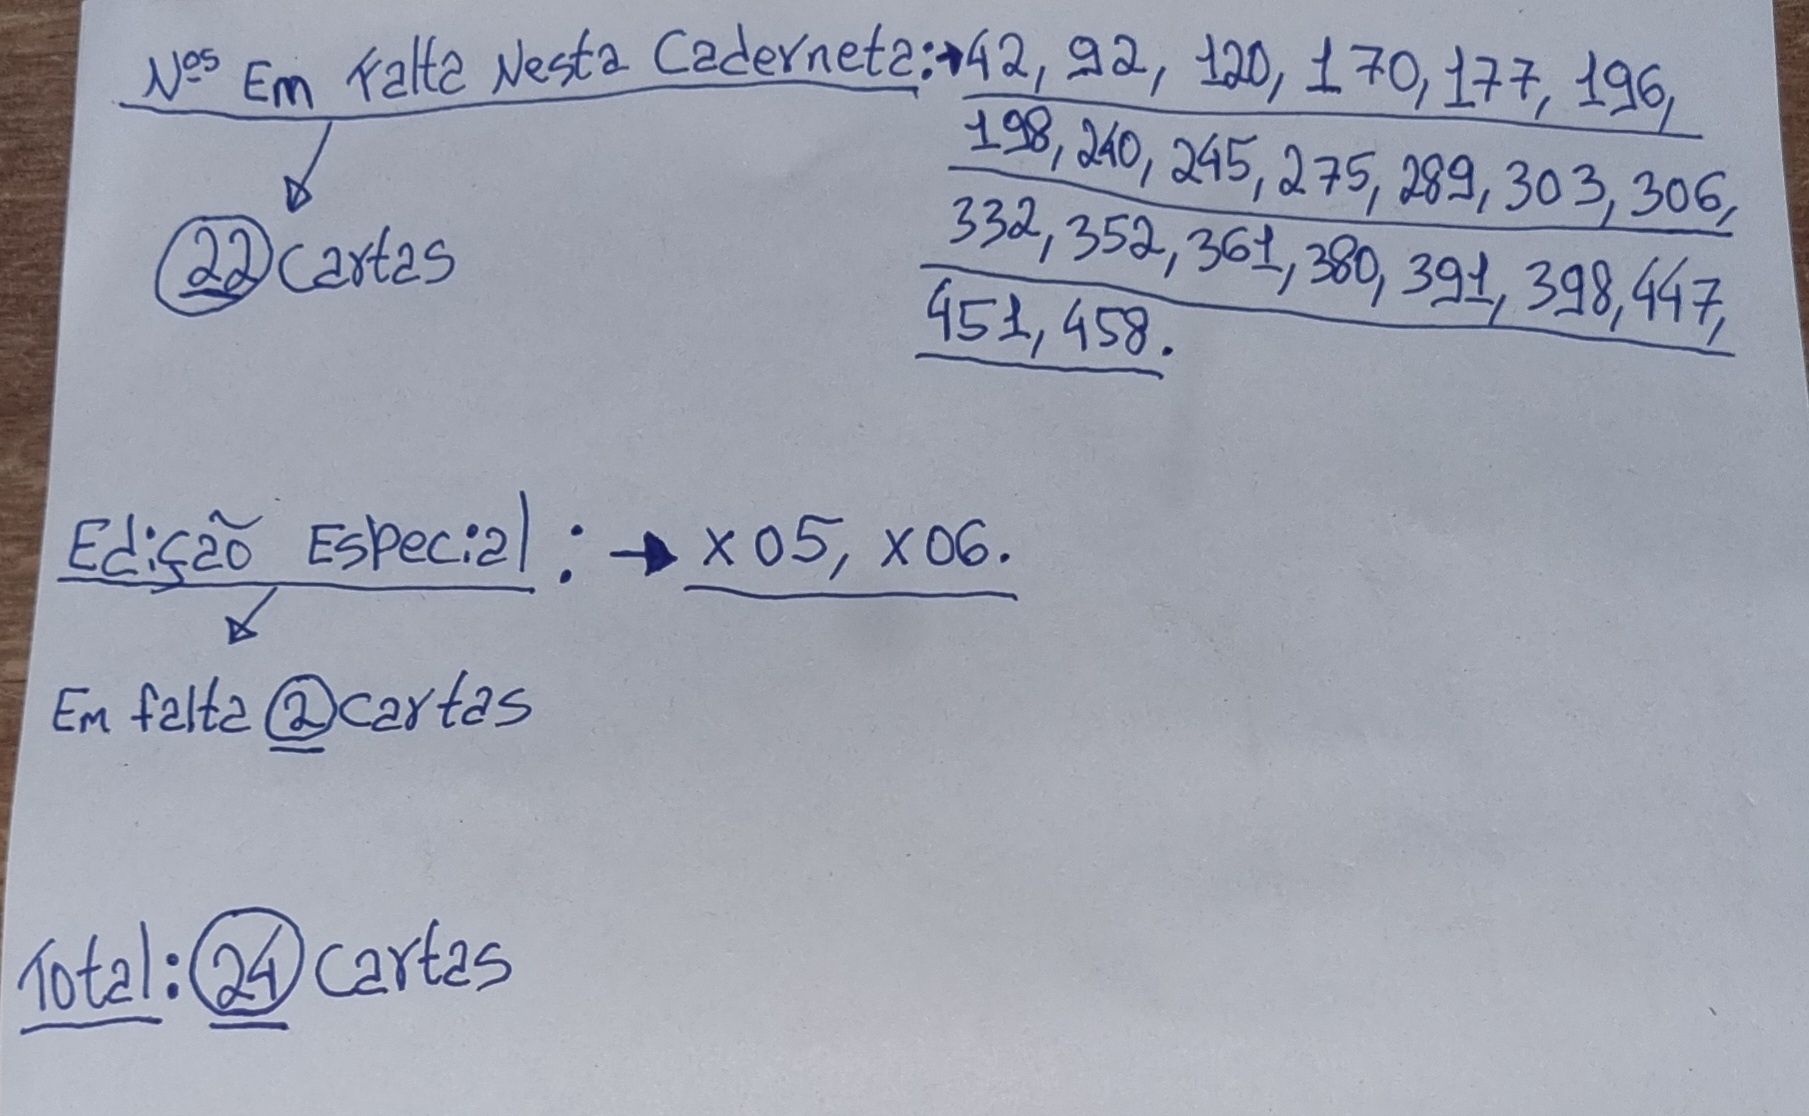 Nºs Em Falta Nesta Caderneta:→42, 92, 120, 170, 177, 196,
198, 240, 245, 275, 289, 303, 306,
332, 352, 361, 380, 391, 398, 447,
451, 458.
22 Cartas
Edição Especial : → X05, X06.
Em falta 2 cartas
Total: 24 Cartas